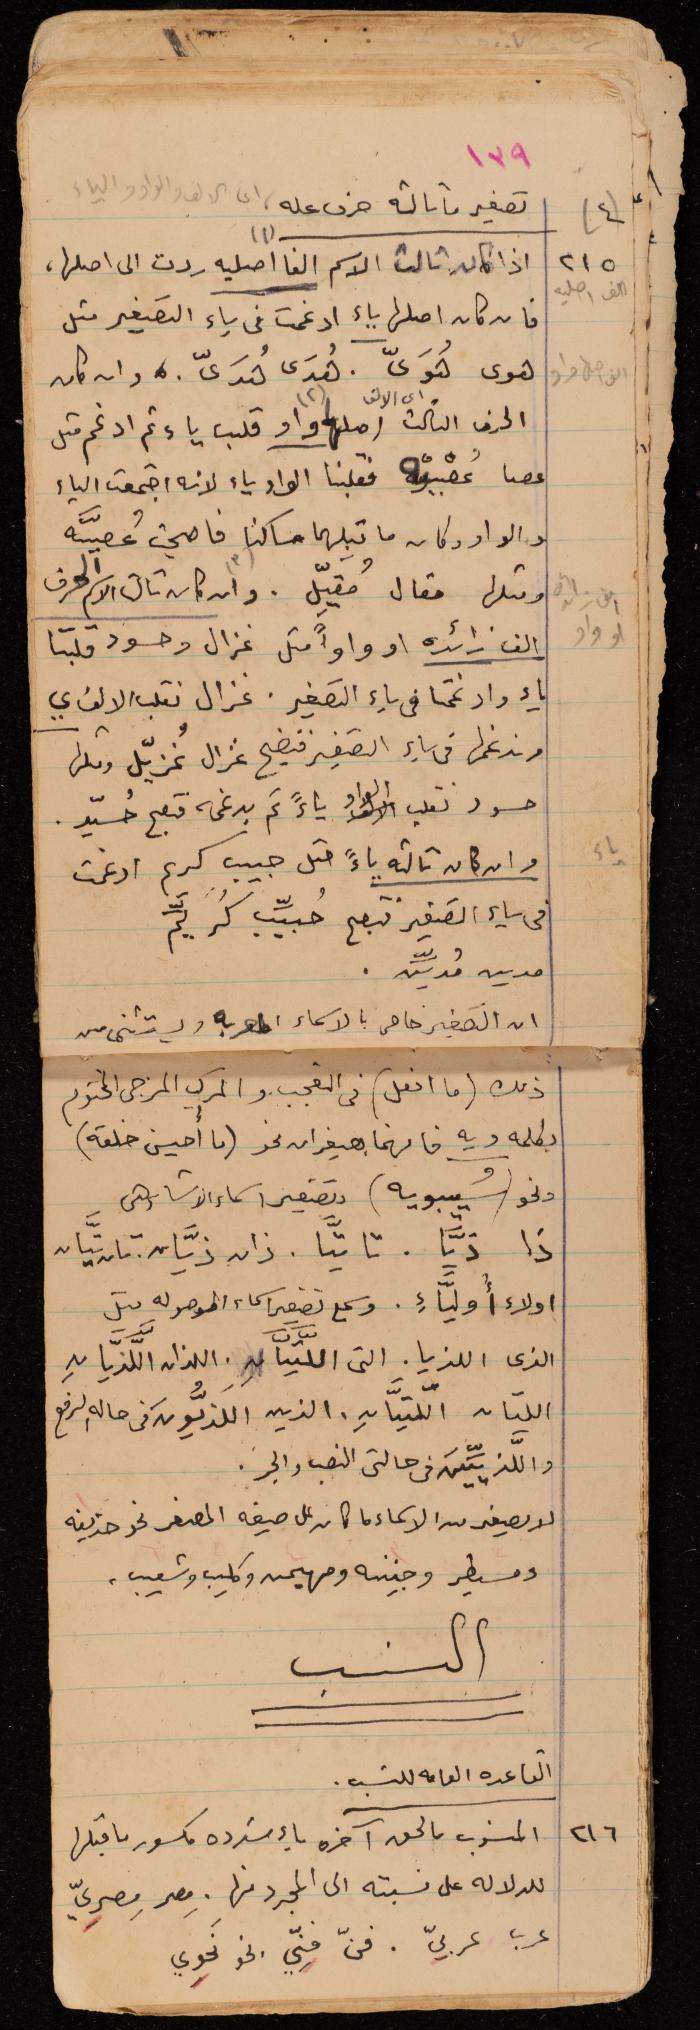 ١٣٩
(٤) تصغير ما ثالثه حرف عله، اى الالف والواو والياء
٢١٥ اذا كان ثالث الاسم الفا اصليه (١) ردت الى اصلها،
الف اصليه
فان كان اصلها ياء ادغمت فى ياء التصغير مثل
هوى هُوَىّ . هُدَى هُدَىّ . وان كان
الحرف الثالث اى الالف اصلها واو (٢) قلب ياء ثم ادغم مثل
عصا عُصَيْوَة فقلبنا الواو ياء لانه اجتمعت الياء
والواو وكان ما قبلهما ساكنا فاصبحت عُصَيَّة
ومثلها مقال مُقَيِّل . (٣) وان كان ثالث الاسم الحرف
الف زائده
او واو
الف زائده او واواً مثل غزال وحسود قلبتا
ياء وادغمتا فى ياء التصغير . غزال نقلب الالف ي
وندغمها فى ياء التصغير فتصبح غزال غُزَيّل ومثلها
حسود نقلب الواو ياءً ثم يدغم، فتصبح حُسيّد .
ياء
وان كان ثالثه ياءً مثل حبيب كريم ادغمت
فى ياء التصغير فتصبح حُبيِّب كُرَيِّم
مدين مُدَيِّن .
ان التصغير خاص بالاسماء المعربه ويستثنى من
ذلك (ما افعل) فى التعجب والمركب المزجى المختوم
بكلمه ويه فانهما يصغران نحو (ما أُحيسن خلقه)
ونحو (سُيبويه) وتصغير اسماء الاشاره وهى
ذا ذَيَّا . تا تَيَّا . ذان ذَيَّان . تان تَيَّان
اولاء أُوليَّاءِ . وسمع تصغير اسماء الموصوله مثل
الذى اللذيا . التى اللتَيَّا . اللذان اللَّذَيَّانِ
اللتان اللَّتَيَّانِ . الذين اللَّذَيُّونَ فى حاله الرفع
واللَّذَيِّينَ فى حالتى النصب والجر .
لا يصغر من الاسماء ما كان على صيغه المصغر نحو حذيفه
ومسيطر وجفينه ومهيمن وكليب وشعيب .
النسب
القاعده العامه للنسب .
٢١٦ المنسوب ما لحق آخره ياء مشدده مكسور ما قبلها
للدلاله على نسبته الى المجرد منها . مِصر مِصرِيّ
عرب عربيّ . فنّ فنِّيّ . نحو نَحوِي